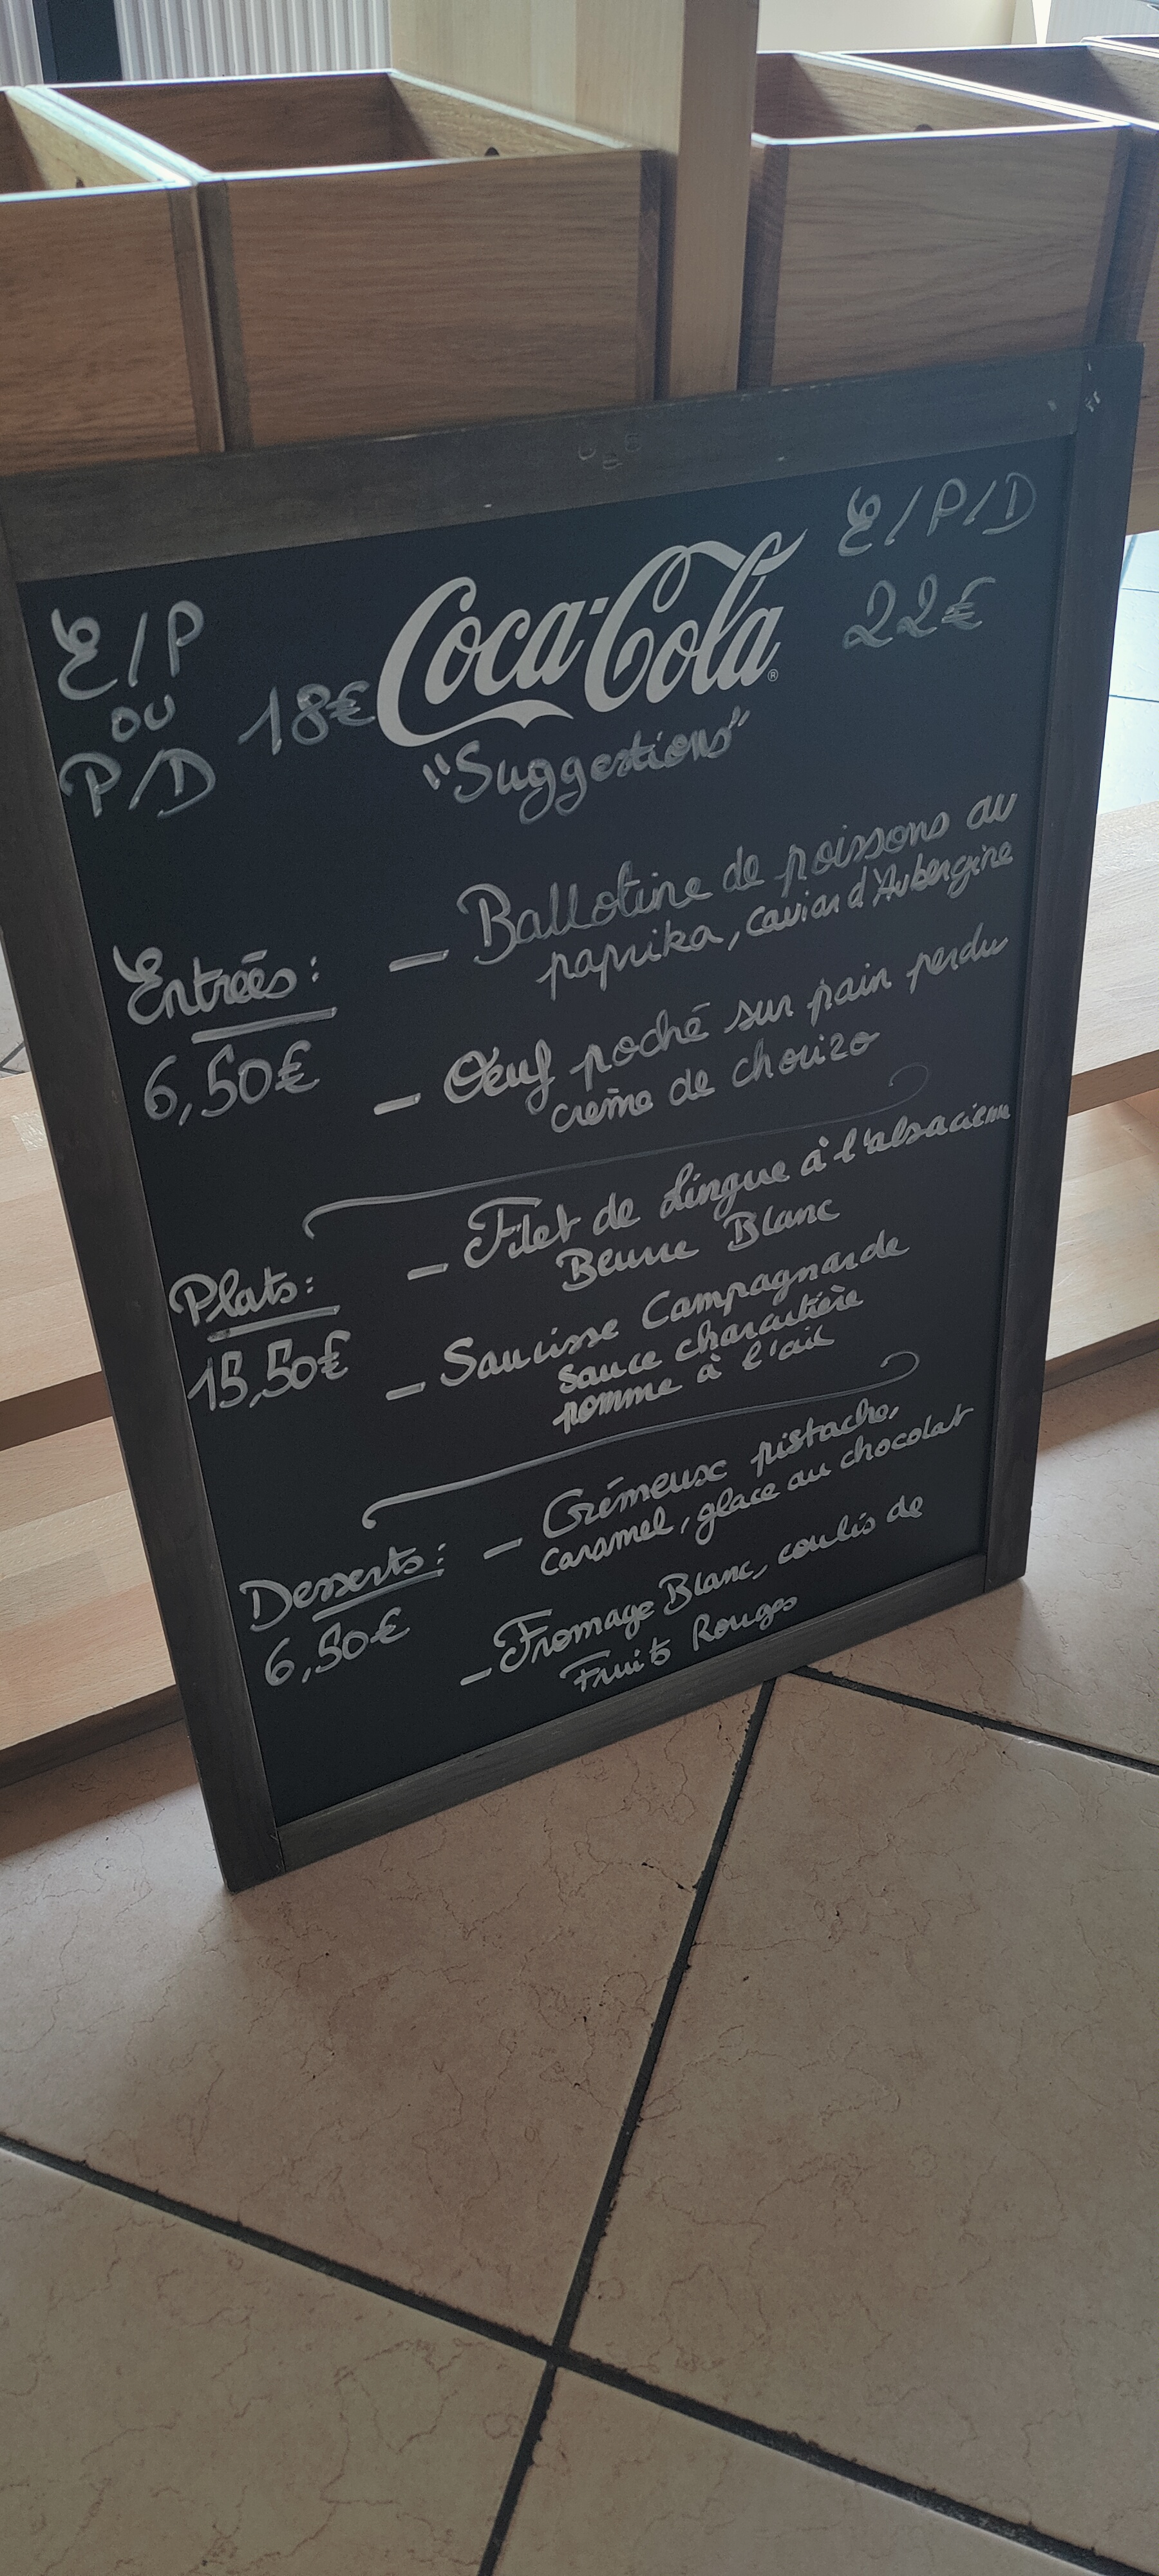 E/P
ou
P/D
18€
Coca-Cola®
E/P/D
22€
"Suggestions"
Entrées :
6,50€
- Ballotine de poissons au
paprika, caviar d'Aubergine
- Œuf poché sur pain perdu
crème de chorizo
Plats :
15,50€
- Filet de Lingue à l'alsacienne
Beurre Blanc
- Saucisse Campagnarde
sauce charcutière
pomme à l'ail
Desserts :
6,50€
- Crémeux pistache,
caramel, glace au chocolat
- Fromage Blanc, coulis de
Fruits Rouges